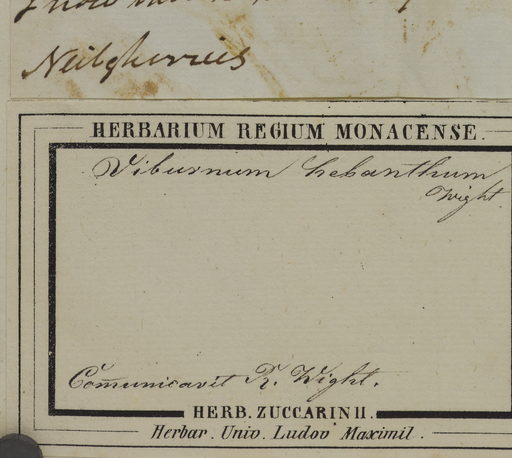 Neilgherries
HERBARIUM REGIUM MONACENSE.
Viburnum hebanthum
Wight
Com̅unicavit R. Wight.
HERB. ZUCCARINII.
Herbar. Univ. Ludov Maximil.